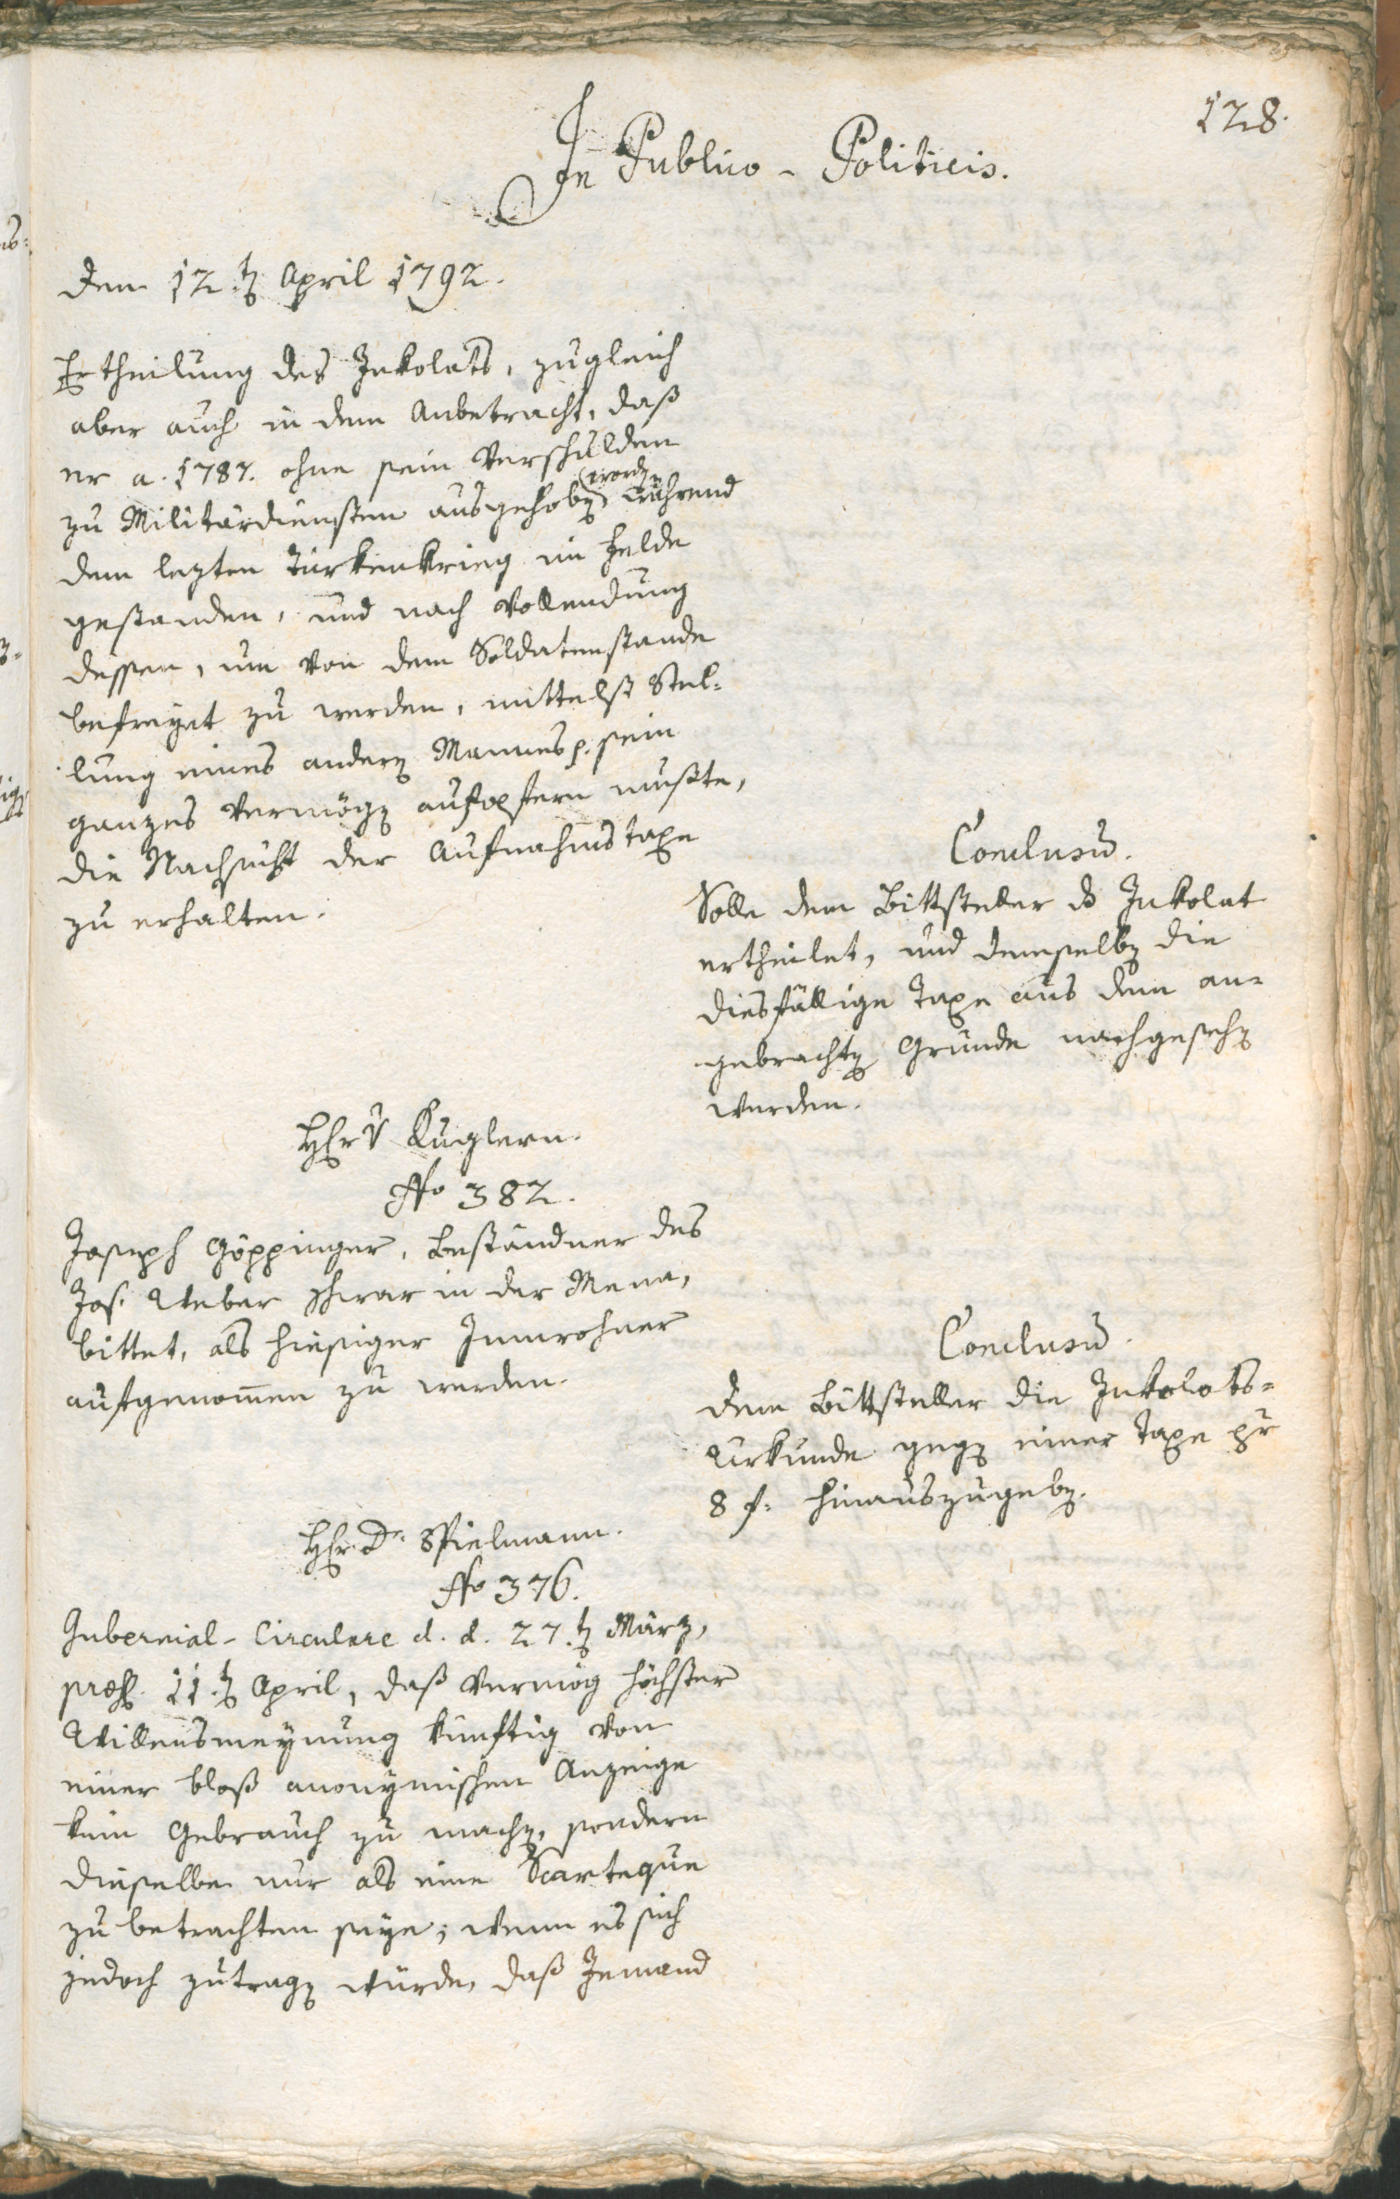 128.
In Publico - Politicis.
Den 12.tn April 1792.
Ertheilung des Inkolats, zugleich
aber auch in dem Anbetracht, daß
er a. 1787. ohne sein Verschulden
zu Militärdiensten ausgehobn (wordn während
dem lezten Türkenkrieg im Felde
gestanden, und nach Vollendung
dessen, um von dem Soldatenstande
befreyet zu werden, mittelst Stel-
lung eines andern Mannes p. sein
ganzes Vermögn aufopfern mußte,
die Nachsicht der Aufnahmstaxe
zu erhalten.
Conclusū.
Solle dem Bittsteller ds Inkolat
ertheilet, und demselbn die
diesfällige Taxe aus dem an-
gebrachtn Grunde nachgesehn
werden.
HEr v Kuglern.
No 382.
Joseph Göppinger, Beständner des
Jos. Weber in der Mena,
bittet, als hiesiger Innwohner
aufgenom̄en zu werden.
Conclusū.
Dem Bittsteller die Inkolats-
Urkunde gegn einer Taxe pr
8 f. hinauszugebn.
HEr Dr Spielmann.
No 376.
Gubernial-Circulare d. d. 27.tn März,
præs. 11.tn April, daß vermög höchster
Willensmeynung künftig von
einer bloß anonymischen Anzeige
kein Gebrauch zu machn, sondern
dieselbe nur als eine Scarteque
zu betrachten seye; wenn es sich
jedoch zutragn würde, daß Jemand